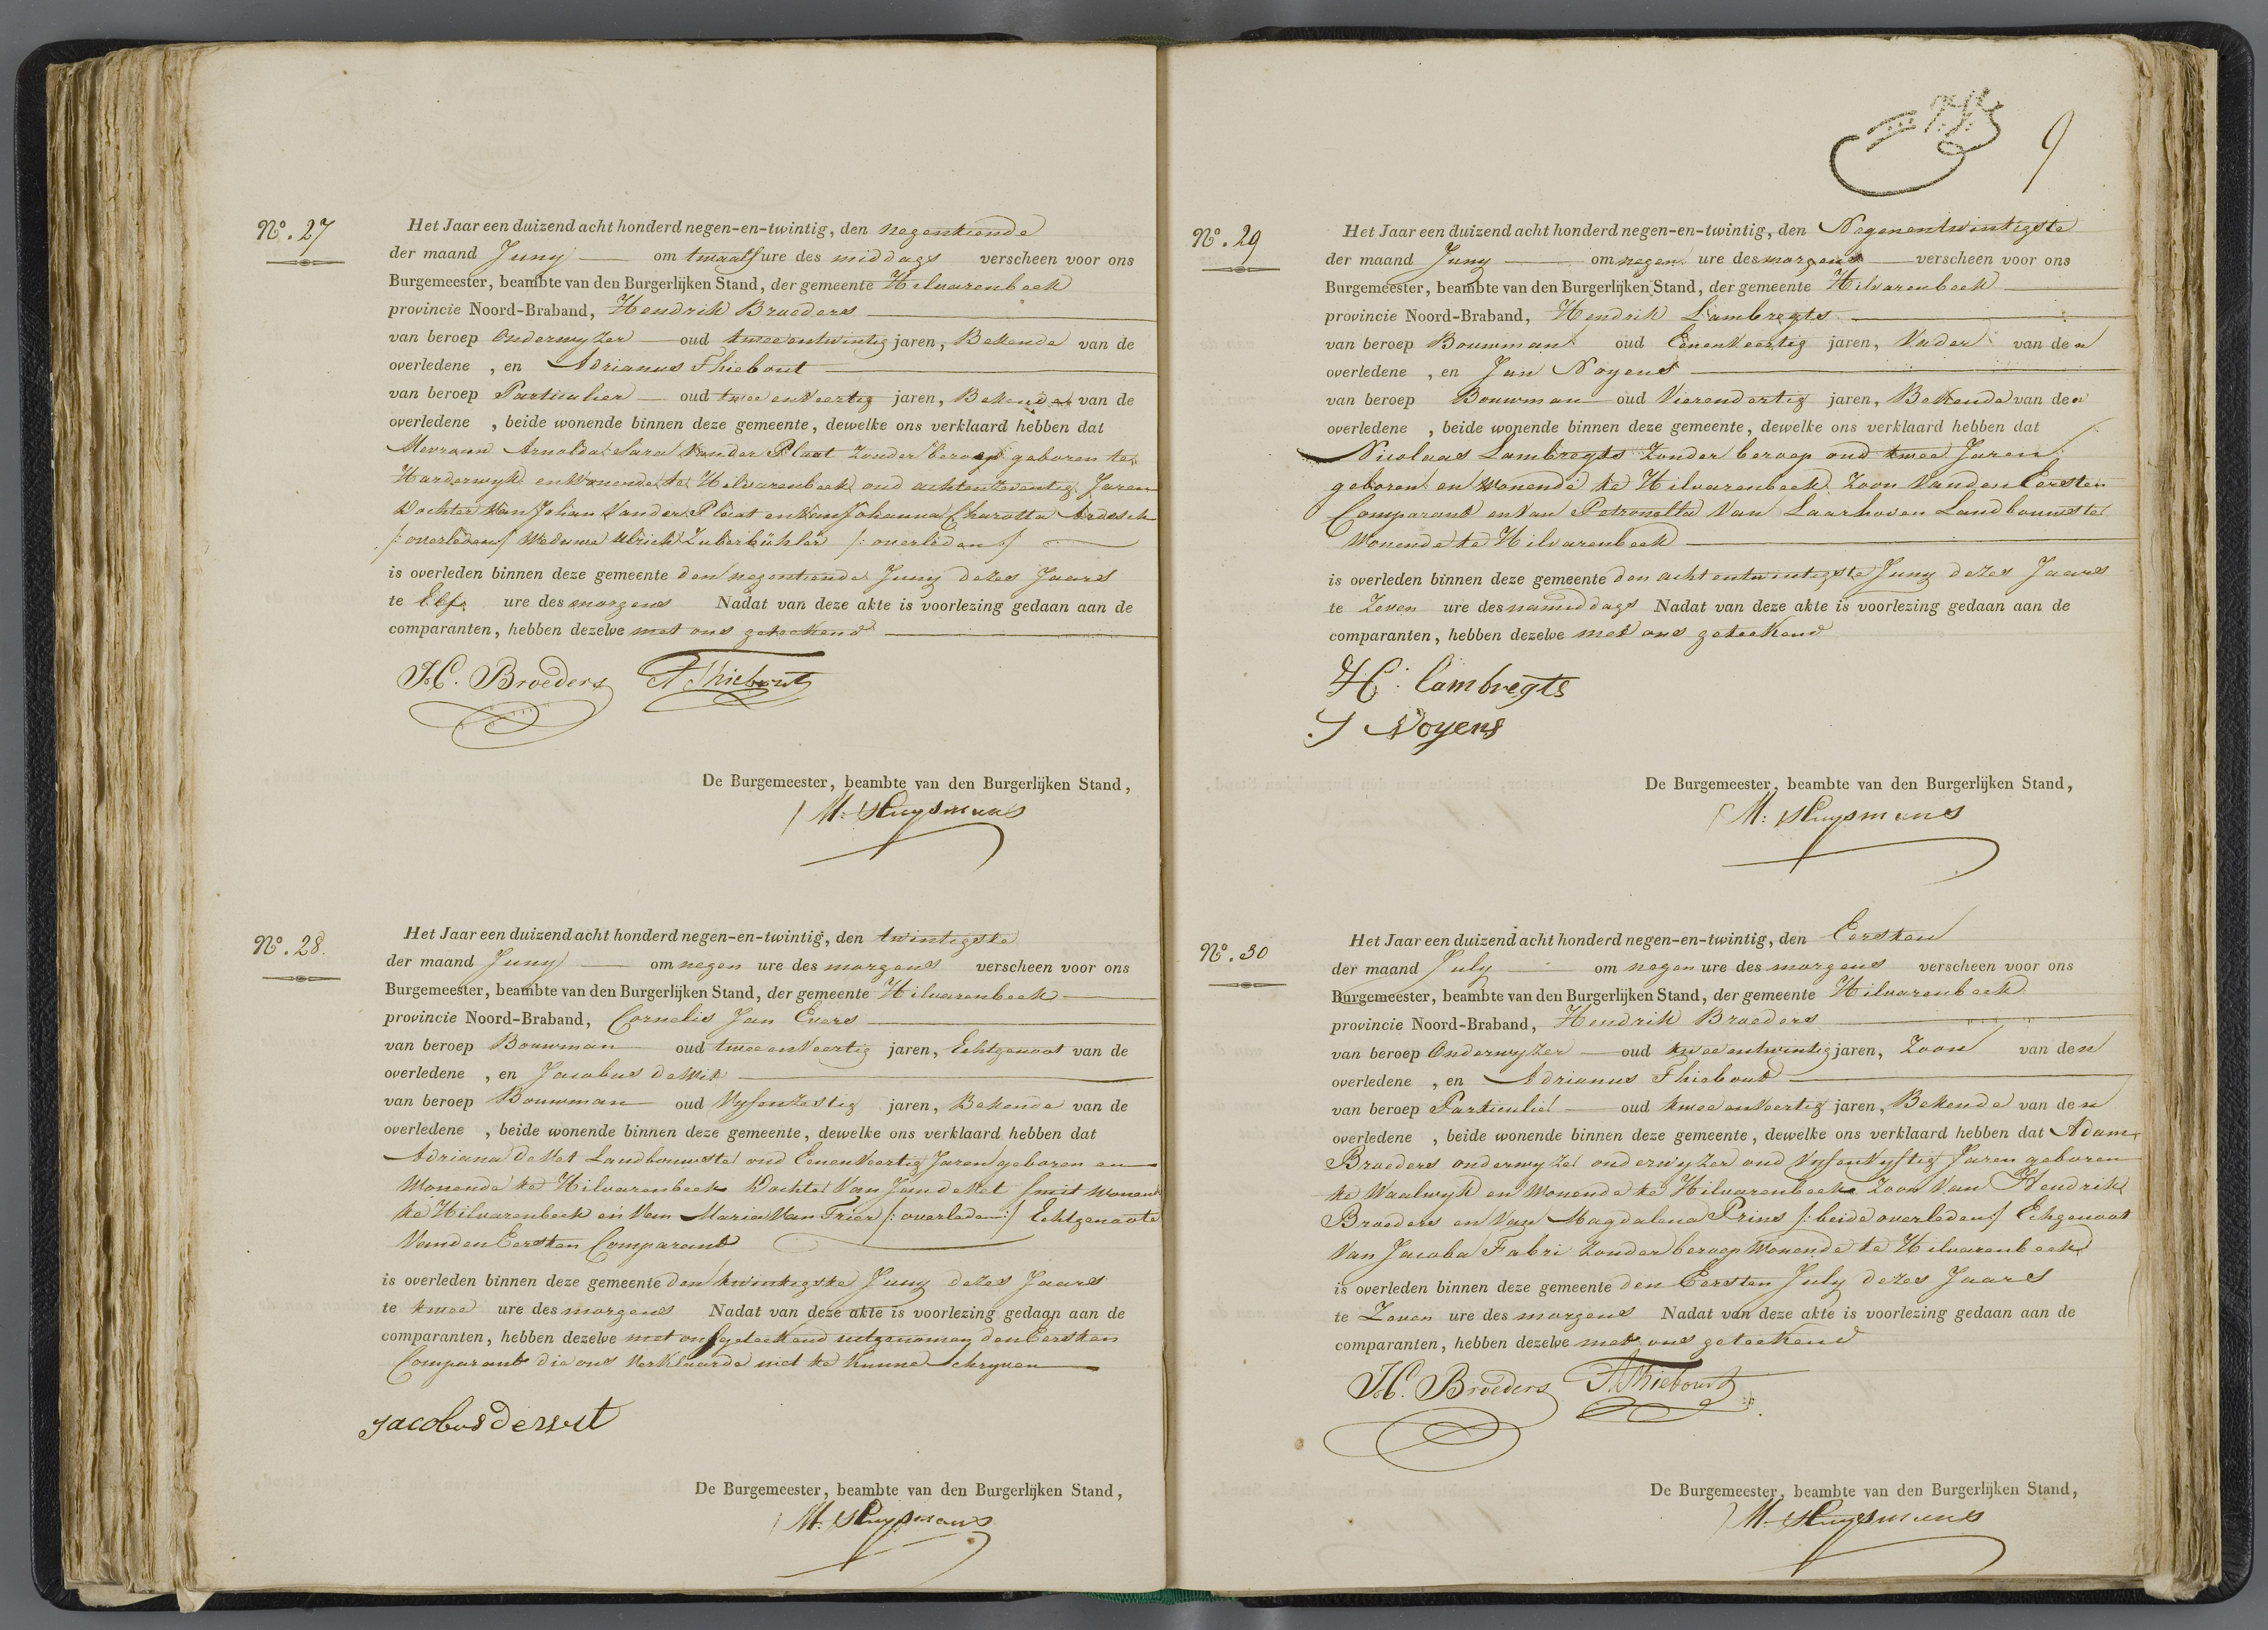 Nº. 27
Het Jaar een duizend acht honderd negen-en-twintig, den negentiende
der maand Juny om twaalf ure des middags verscheen voor ons
Burgemeester, beambte van den Burgerlijken Stand, der gemeente Hilvarenbeek
provincie Noord-Braband, Hendrik Broeders
van beroep Onderwyzer oud tweeentwintig jaren, Bekende van de
overledene , en Adrianus Thiebout
van beroep Particulier oud twee enveertig jaren, Bekende van de
overledene , beide wonende binnen deze gemeente, dewelke ons verklaard hebben dat
Mevrouw Arnolda Sara Vander Plaat Zonder beroep geboren te
Harderwyk en Wonende te Hilvarenbeek oud achtenzeventig Jaren
Dochter Van Johan Vander Plaat en Van Johanna Charotta Ardesch
/: overleden / Weduwe Ulrich Zuberbühler /: overleden /
is overleden binnen deze gemeente den negentiende Juny dezes Jaars
te Elf ure des morgens Nadat van deze akte is voorlezing gedaan aan de
comparanten, hebben dezelve met ons geteekend
H. Broeders A Thiebout
De Burgemeester, beambte van den Burgerlijken Stand,
M: Huysmans
Nº. 28.
Het Jaar een duizend acht honderd negen-en-twintig, den twintigste
der maand Juny om negen ure des morgens verscheen voor ons
Burgemeester, beambte van den Burgerlijken Stand, der gemeente Hilvarenbeek
provincie Noord-Braband, Cornelis Jan Evers
van beroep Bouwman oud twee enveertig jaren, Echtgenoot van de
overledene , en Jacobus de Wit
van beroep Bouwman oud Vyfenzestig jaren, Bekende van de
overledene , beide wonende binnen deze gemeente, dewelke ons verklaard hebben dat
Adriana de Met Landbouwster oud Eenenveertig Jaren geboren en
Wonende te Hilvarenbeek Dochter Van Jan de Met Smit Wonend
te Hilvarenbeek en Van Maria Van Trier /: overleden :/ Echtgenoote
Vanden Eersten Comparant
is overleden binnen deze gemeente den twintigste Juny dezes Jaars
te twee ure des morgens Nadat van deze akte is voorlezing gedaan aan de
comparanten, hebben dezelve met ons geteekend uitgenomen den Eersten
Comparant die ons Verklaarde niet te kunne Schryven
Jacobus de wit
De Burgemeester, beambte van den Burgerlijken Stand,
M: Huysmans
9
Nº. 29
Het Jaar een duizend acht honderd negen-en-twintig, den Negenentwintigste
der maand Juny om negen ure des morgens verscheen voor ons
Burgemeester, beambte van den Burgerlijken Stand, der gemeente Hilvarenbeek
provincie Noord-Braband, Hendrik Lambregts
van beroep Bouwman oud Eenenveertig jaren, Vader van den
overledene , en Jan Noyens
van beroep Bouwman oud Vierendertig jaren, Bekende van den
overledene , beide wonende binnen deze gemeente, dewelke ons verklaard hebben dat
Nicolaas Lambregts Zonder beroep oud twee Jaren
geboren en Wonende te Hilvarenbeek Zoon Vanden Eersten
Comparant en Van Petronella Van Laarhoven Landbouwster
Wonende te Hilvarenbeek
is overleden binnen deze gemeente den acht entwintigste Juny dezes Jaars
te Zeven ure des namiddags Nadat van deze akte is voorlezing gedaan aan de
comparanten, hebben dezelve met ons geteekend
H: lambregts
J Noyens
De Burgemeester, beambte van den Burgerlijken Stand,
M: Huysmans
Nº. 30
Het Jaar een duizend acht honderd negen-en-twintig, den Eersten
der maand July om negen ure des morgens verscheen voor ons
Burgemeester, beambte van den Burgerlijken Stand, der gemeente Hilvarenbeek
provincie Noord-Braband, Hendrik Broeders
van beroep Onderwyzer oud tweeentwintig jaren, Zoon van den
overledene , en Adrianus Thiebout
van beroep Particulier oud twee enveertig jaren, Bekende van den
overledene , beide wonende binnen deze gemeente, dewelke ons verklaard hebben dat Adam
Broeders onderwyzer onderwyzer oud Vyfenvyftig Jaren geboren
te Waalwyk en Wonende te Hilvarenbeek Zoon Van Hendrik
Broeders en Van Magdalena Prins /: beide overleden :/ Echgenoot
Van Jacoba Fabri Zonder beroep Wonende te Hilvarenbeek
is overleden binnen deze gemeente den Eersten July dezes Jaars
te Zeven ure des morgens Nadat van deze akte is voorlezing gedaan aan de
comparanten, hebben dezelve met ons geteekend
H. Broeders A Thiebout
De Burgemeester, beambte van den Burgerlijken Stand,
M: Huysmans